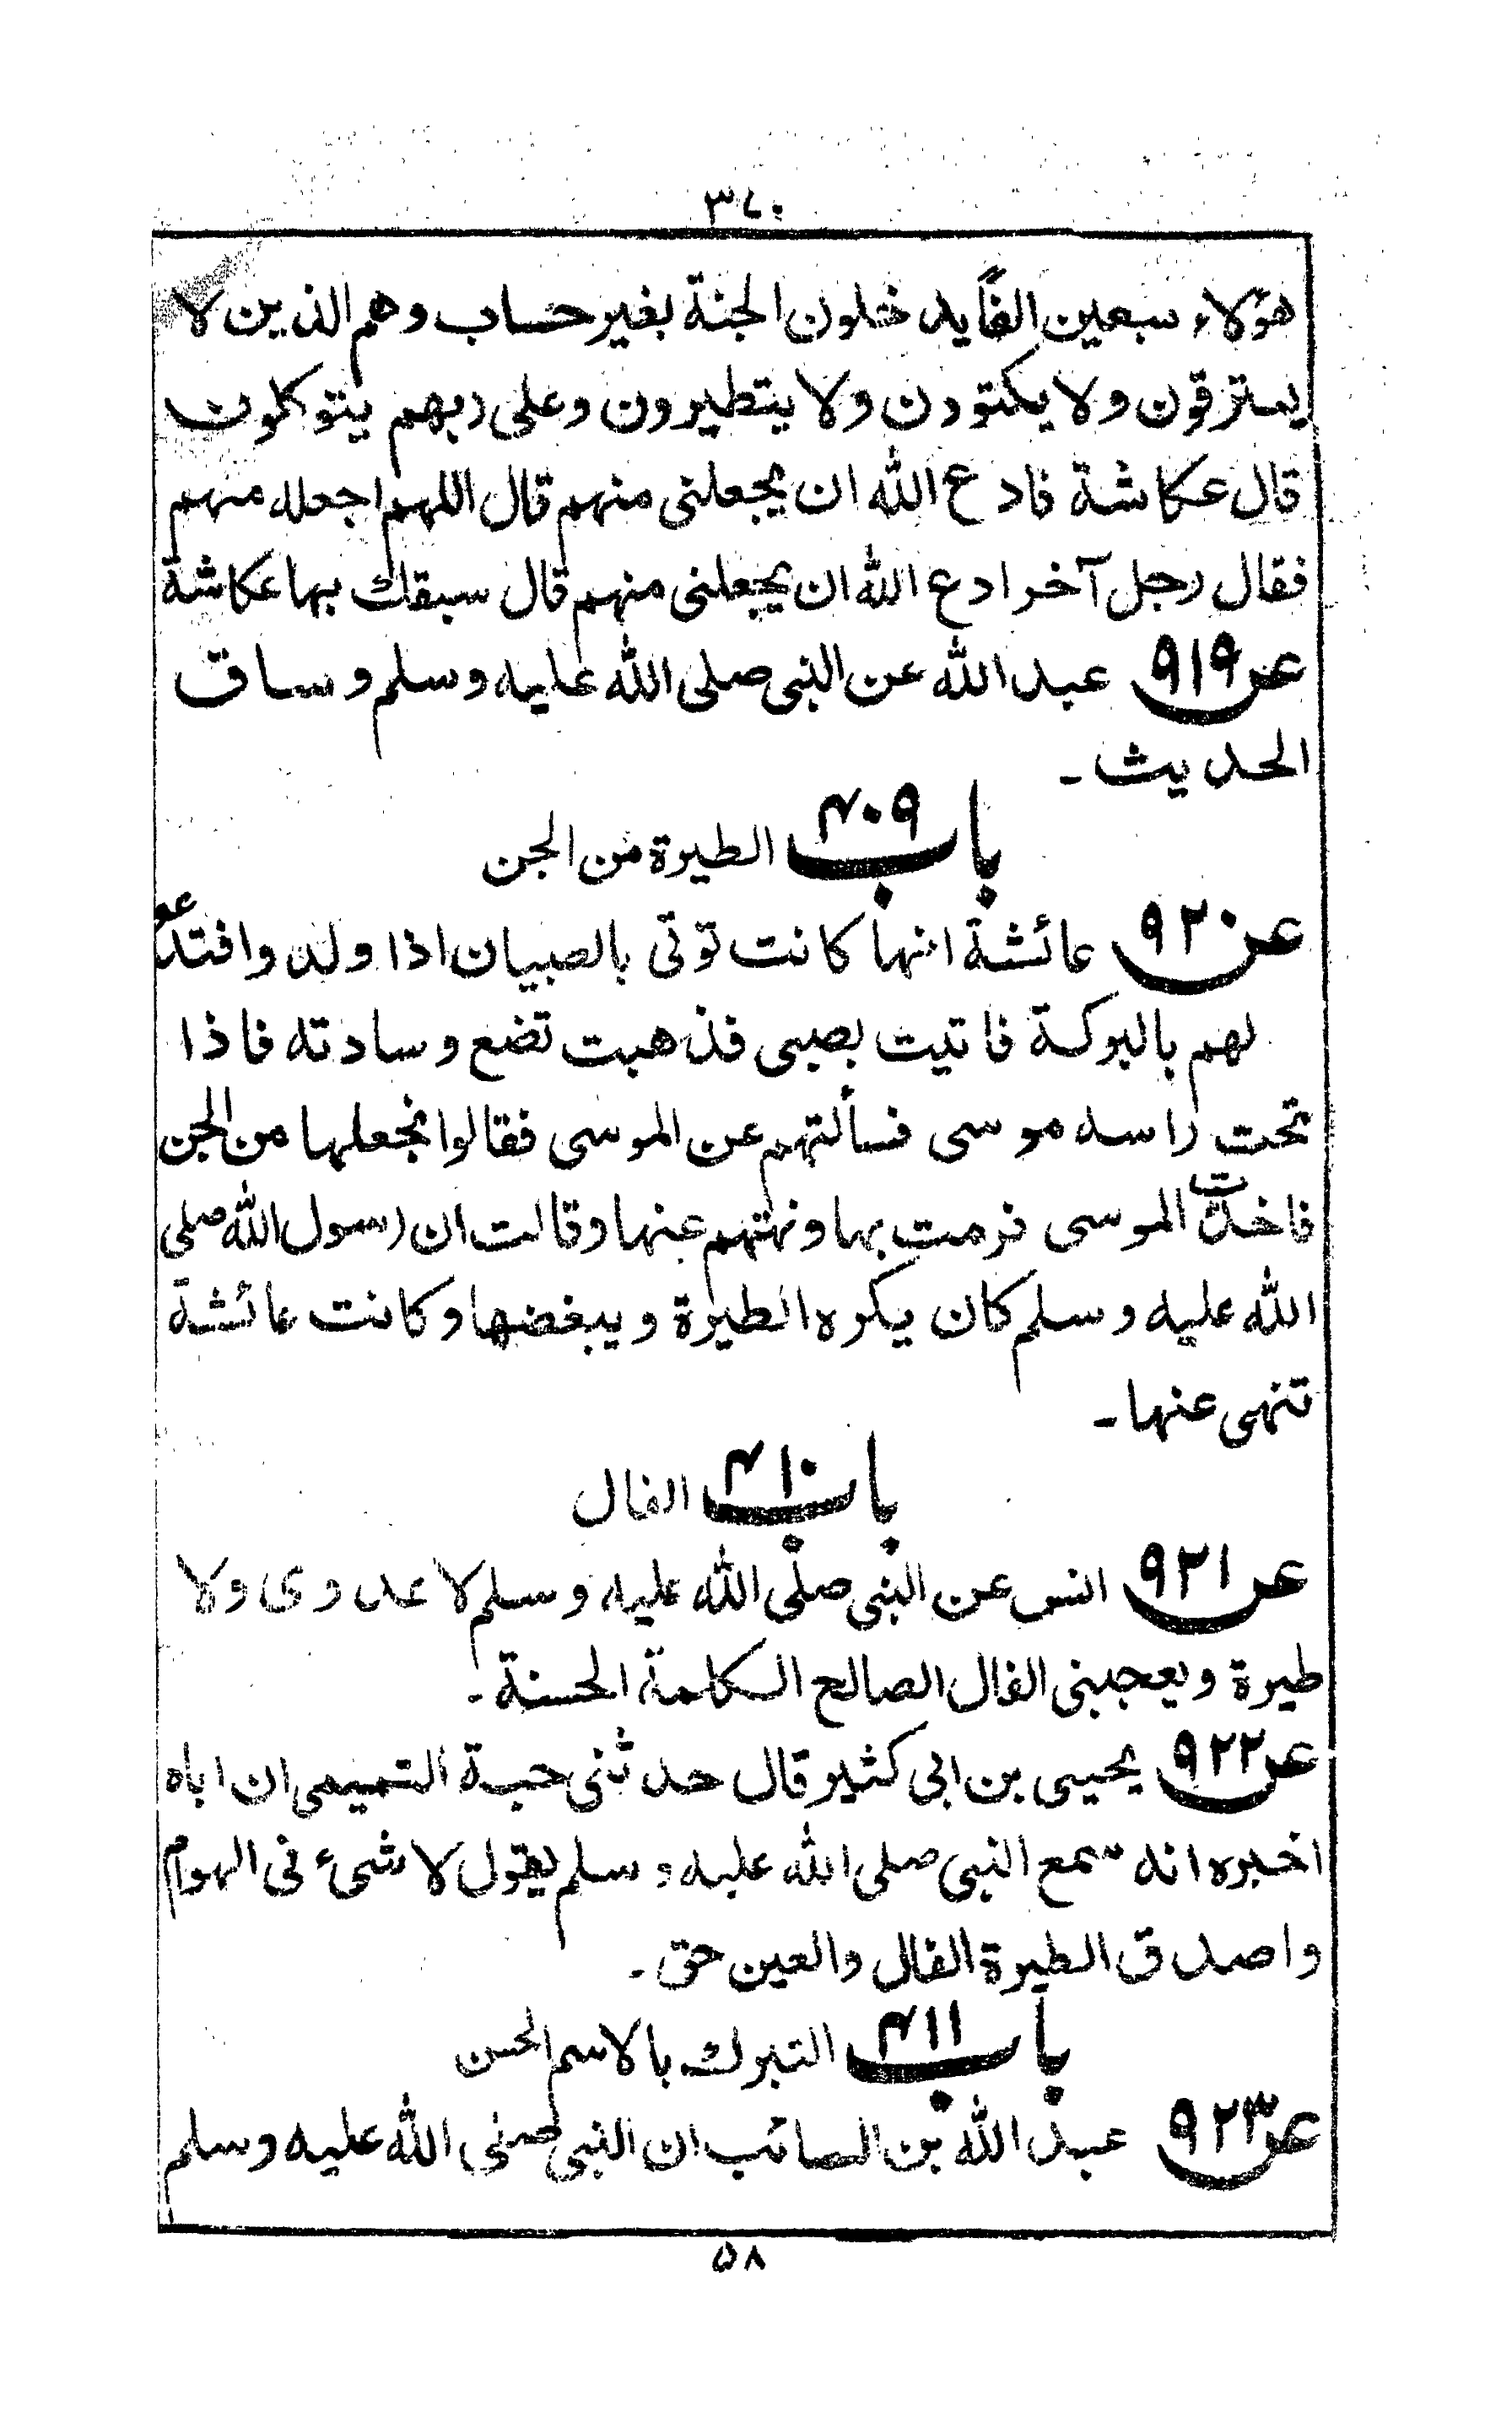 ٣٧٠
هؤلاء سبعين الفا يد خلون الجنة بغير حساب وهم الذين لا
يسترقون ولا يكتوون ولا يتطيرون وعلى ربهم يتوكلون
قال عكاشة فادع الله ان يجعلنى منهم قال اللهم اجعله منهم
فقال رجل آخر ادع الله ان يجعلنى منهم قال سبقك بها عكاشة
عن ٩١٩ عبد الله عن النبى صلى الله عليه وسلم وساق
الحديث ـ
باب ٤٠٩ الطيرة من الجن
عن ٩٢٠ عائشة انها كانت توتى بالصبيان اذا ولدوا فتدعو
لهم بالبركة فاتيت بصبى فذهبت تضع وسادته فاذا
تحت راسه موسى فسألتهم عن الموسى فقالوا نجعلها من الجن
فاخذت الموسى فرمت بها ونهتهم عنها وقالت ان رسول الله صلى
الله عليه وسلم كان يكره الطيرة ويبغضها وكانت عائشة
تنهى عنها ـ
باب ٤١٠ الفال
عن ٩٢١ انس عن النبى صلى الله عليه وسلم لا عدوى ولا
طيرة ويعجبنى الفال الصالح الكلمة الحسنة ـ
عن ٩٢٢ يحيى بن ابى كثير قال حدثنى حبة التميمى ان اباه
اخبره انه سمع النبى صلى الله عليه وسلم يقول لا شىء فى الهوام
واصدق الطيرة الفال والعين حق ـ
باب ٤١١ التبرك بالاسم الحسن
عن ٩٢٣ عبد الله بن السائب ان النبى صلى الله عليه وسلم
٥٨